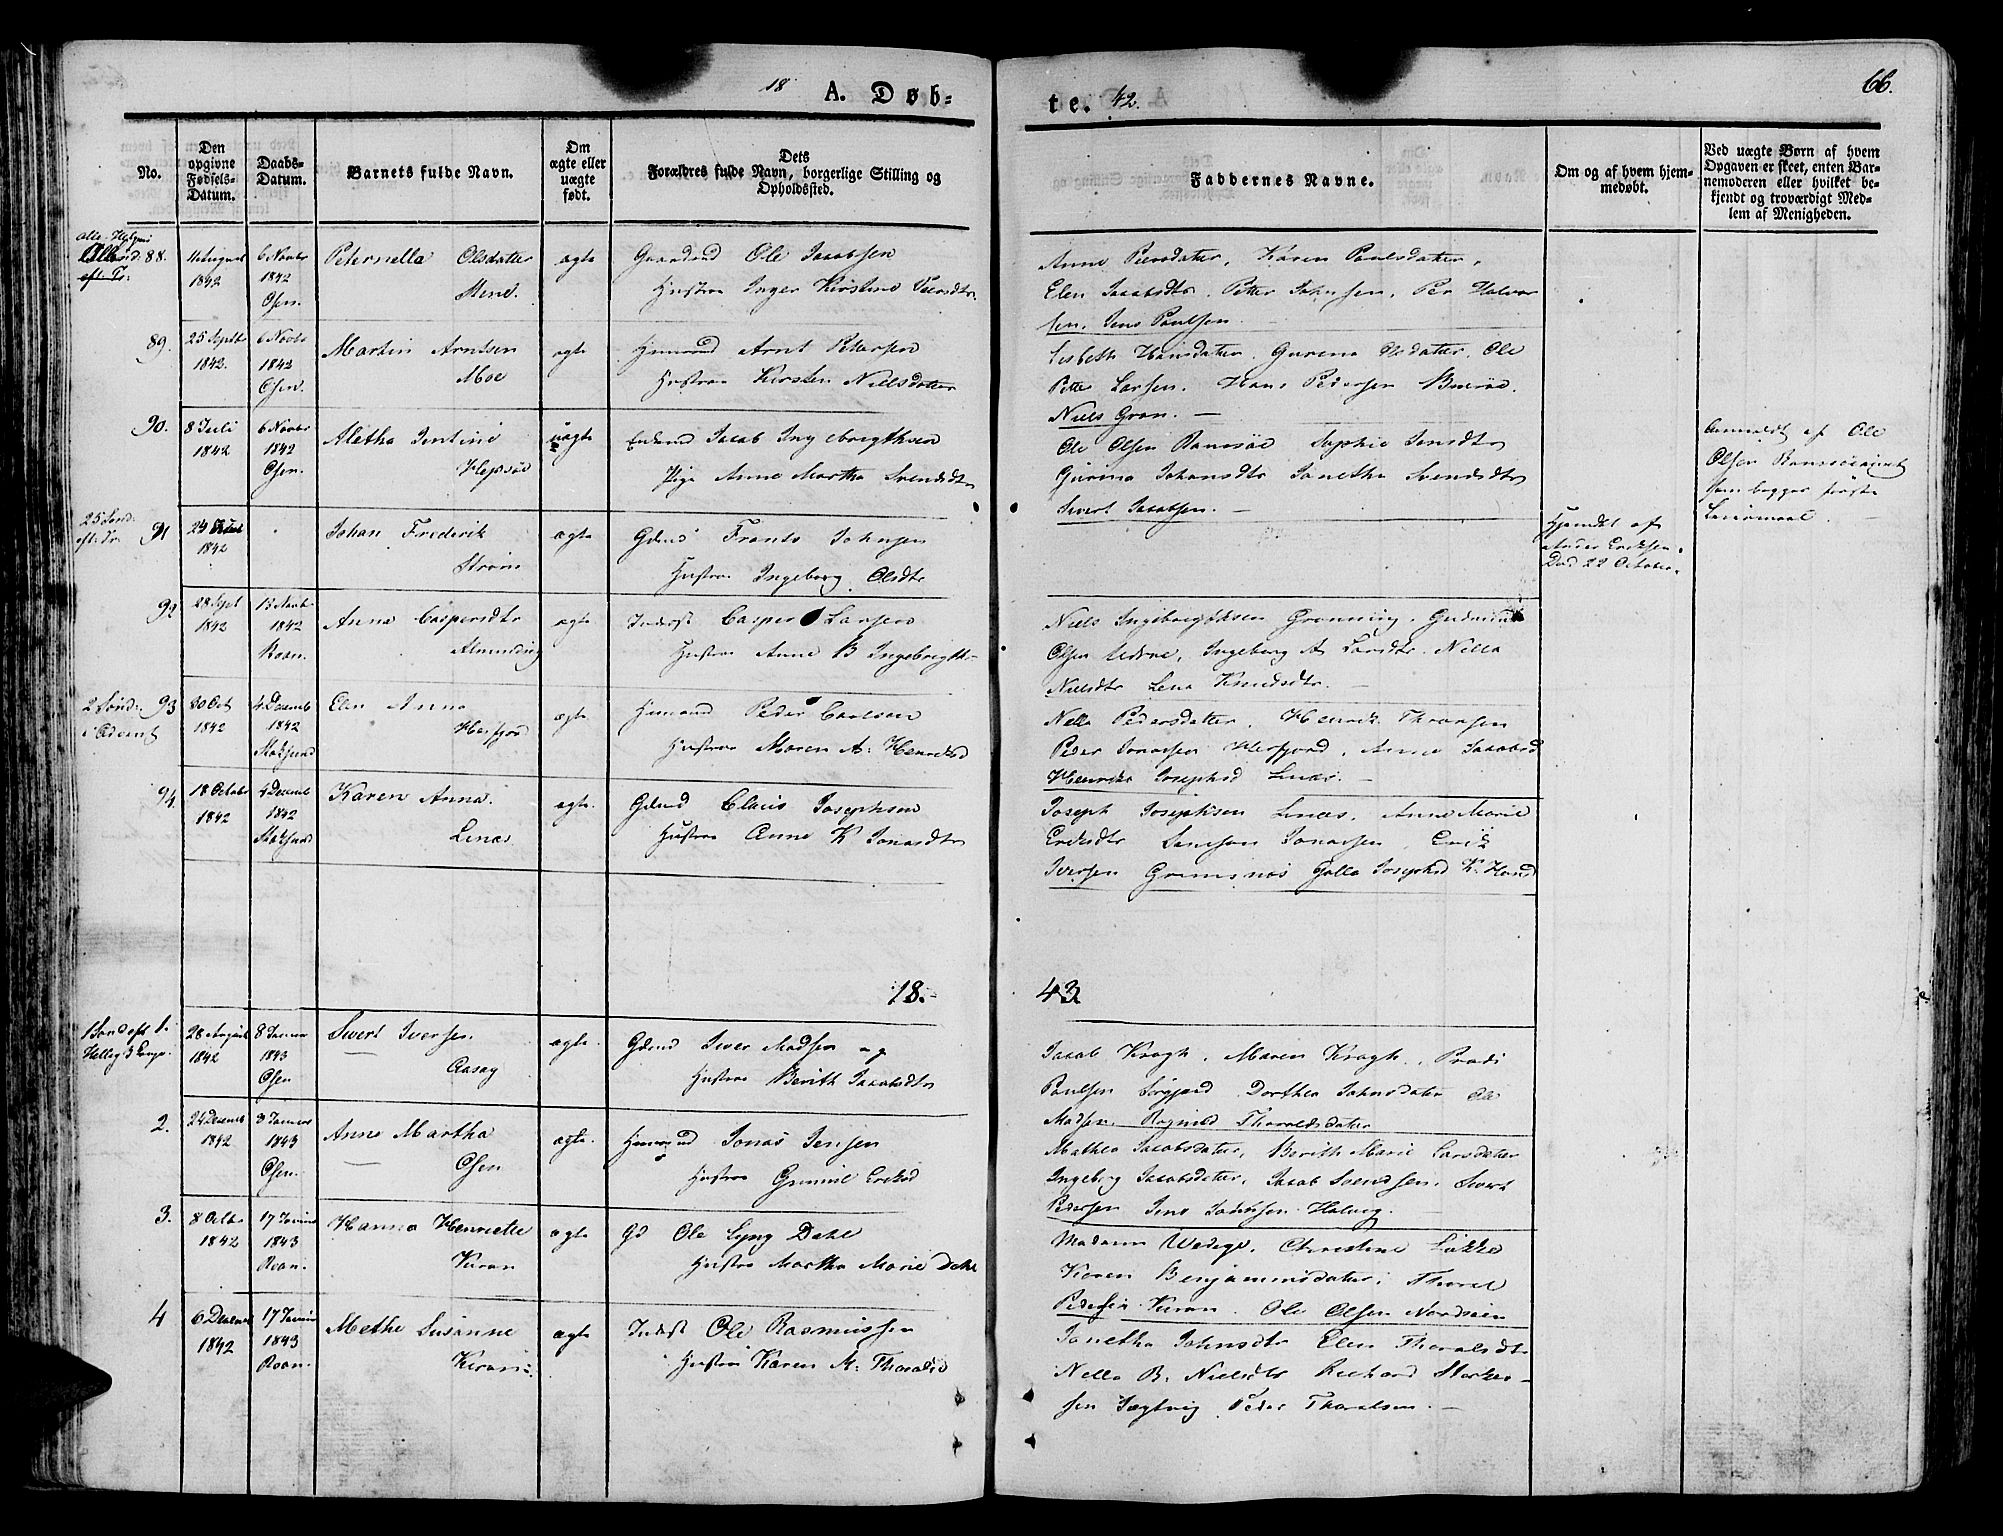 18 A. Døb-
te. 42.
66.
No.
Den opgivne Fødsels-Datum.
Daabs-Datum.
Barnets fulde Navn.
Om ægte eller uægte født.
Dets Forældres fulde Navn, borgerlige Stilling og Opholdssted.
Faddernes Navne.
Om og af hvem hjem-medøbt.
Ved uægte Børn af hvem Opgaven er skeet, enten Bar-nemoderen eller hvilket be-kjendt og troværdigt Med-lem af Menigheden.
88.
11 August 1842
6 Novbr 1842 Osen.
Petternella Olsdatter
ægte
Gaardmd Ole Jacobsen
Hustrue Inger Kirstine
Anne Persdatter, Karen Paulsdatter,
Elen Jacobsdtr, Petter Johnsen, Per Halvor
sen, Jens Paulsen.
89.
25 Septbr 1842.
6 Novbr 1842 Osen.
Martin Arntsen
Moe
ægte
Huusmd Arnt Petersen
Hustrue Kirsten Nielsdatter
Lisbeth Hansdatter, Gurine Olsdatter, Ole
Petter Larsen, Hans Pedersen
Niels Gran. —
90.
8 Juli 1842
6 Novbr 1842 Osen.
Aletha Jentine
Hepsøe
uægte
Enkemd Jacob Ingebregthsen
Pige Anne Martha Svendsdtr
Ole Olsen Ramsøe Sophie Jensdtr
Gurina Johansdtr Janetha Svendsdtr
Sivert Jacobsen. —
Anmeldt af Ole
Olsen
som begges første
Leiermaal.
25 Sønd: eft: Tr.
91
24
1842
Johan Frederik
Strøm
ægte
Frants Johnsen
Hustrue Ingeborg Olsdtr
Hjemdøbt af
Anders Eriksen,
Død 22 October.
92
28 Sept 1842
13 Novbr 1842 Roan.
Anne Caspersdtr
Almending
ægte
Inderst Casper Larsen
Hustrue Anne B Ingebrigth
Niels Ingebregthsen Grønning,
Olsen Ingeborg A Larsdtr. Nella
Nielsdtr Lena Knudsdtr. —
2 Sønd: i Advent
93
30 Oct 1842
4 Decemb 1842 Stoksund
Elen Anna
Herfjord
ægte
Huusmand Peder Carlsen
Hustrue Maren A: Henriksd
Nella Pedersdatter, Henrik Thoresen
Peder Jonassen Herfjord, Anne Jacobsd
Henrikke Josephsd Linæs. —
94.
18 October 1842
4 Decemb 1842 Stoksund
Karen Anna.
Linæs
ægte.
Gdmd Claus Josephsen
Hustrue Anne K Jonasdtr
Joseph Josephsen Linæs, Anne Marie
Jonassen, Erik
Iversen Grimsnæs Golla Josephsd K. Hansd
18. 43
1 Sønd eft Hellig 3 Konge.
1.
28 August 1842
8 Januar 1843 Osen
Sivert Iversen.
ægte.
Gdmd Iver Madsen og
Hustrue Berith Jacobsdtr
Jacob Krogh, Maren Krogh,
Paulsen Sørgjerd Dorthea Johnsdatter Ole
Madsen. Ragnild Thoraldsdatter
2.
24 Decemb 1842
8 Januar 1843 Osen.
Anne Martha
Osen
ægte.
Huusmand Jonas Jensen
Hustrue Gunnil Eriksd
Mathea Jacobsdatter, Berith Marie Larsdatter
Ingeborg Jacobsdatter, Jacob Svendsen, Sivert
Pedersen Jens Johnsen
3.
8 Octbr 1842
17 Januar 1843 Roan.
Hanna Henriette
Kiran
ægte
Gd Ole Lyng Dahl
Hustrue Martha Marie Dahl
Madam Wedege, Christine Lykke
Karen Benjaminsdatter, Thorel
Pedersen Kiran. Ole Olsen
4
6 Decemb 1842
17 Januar 1843 Roan.
Methe Susanne
Kiran
ægte
Inderst Ole Rasmussen
Hustrue Karen M: Thoraldsd
Janetha Johnsdtr Elen Thoraldsdtr
Nella B. Nielsdtr Richard
sen Peder Thoralsen. —